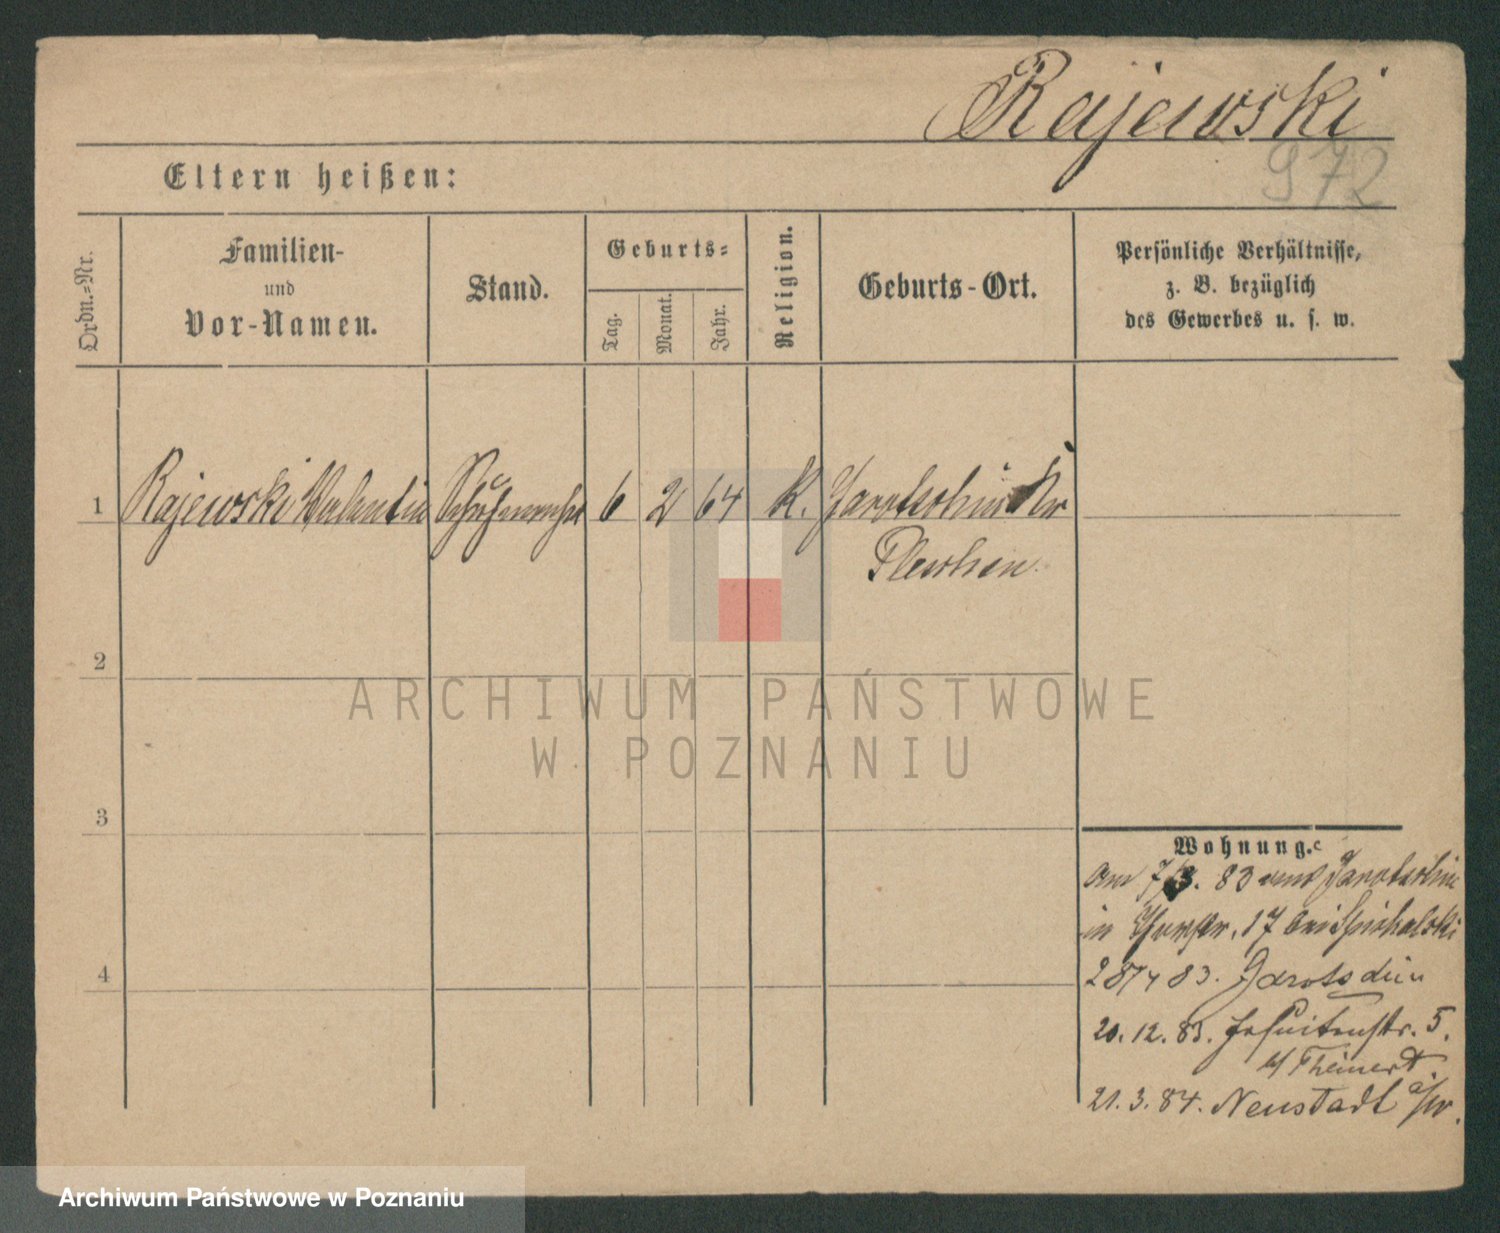 Rajewski
972
Eltern heißen:
Ordn.=Nr.
Familien-
und
Vor-Namen.
Stand.
Geburts=
Tag.
Monat.
Jahr.
Religion.
Geburts-Ort.
Persönliche Verhältnisse,
z. B. bezüglich
des Gewerbes u. s. w.
1 Rajewski Valentin 6 2 64 K. Jarotschin Kr
Pleschen
2
ARCHIWUM PAŃSTWOWE
W POZNANIU
3
Wohnung.
am 7/3. 83 aus Jarotschin
in 17 bei
83. Jarotschin
20. 12. 83. Jesuitenstr. 5.
b/ Theinert
4
21. 3. 84. Neustadt a/W.
Archiwum Państwowe w Poznaniu